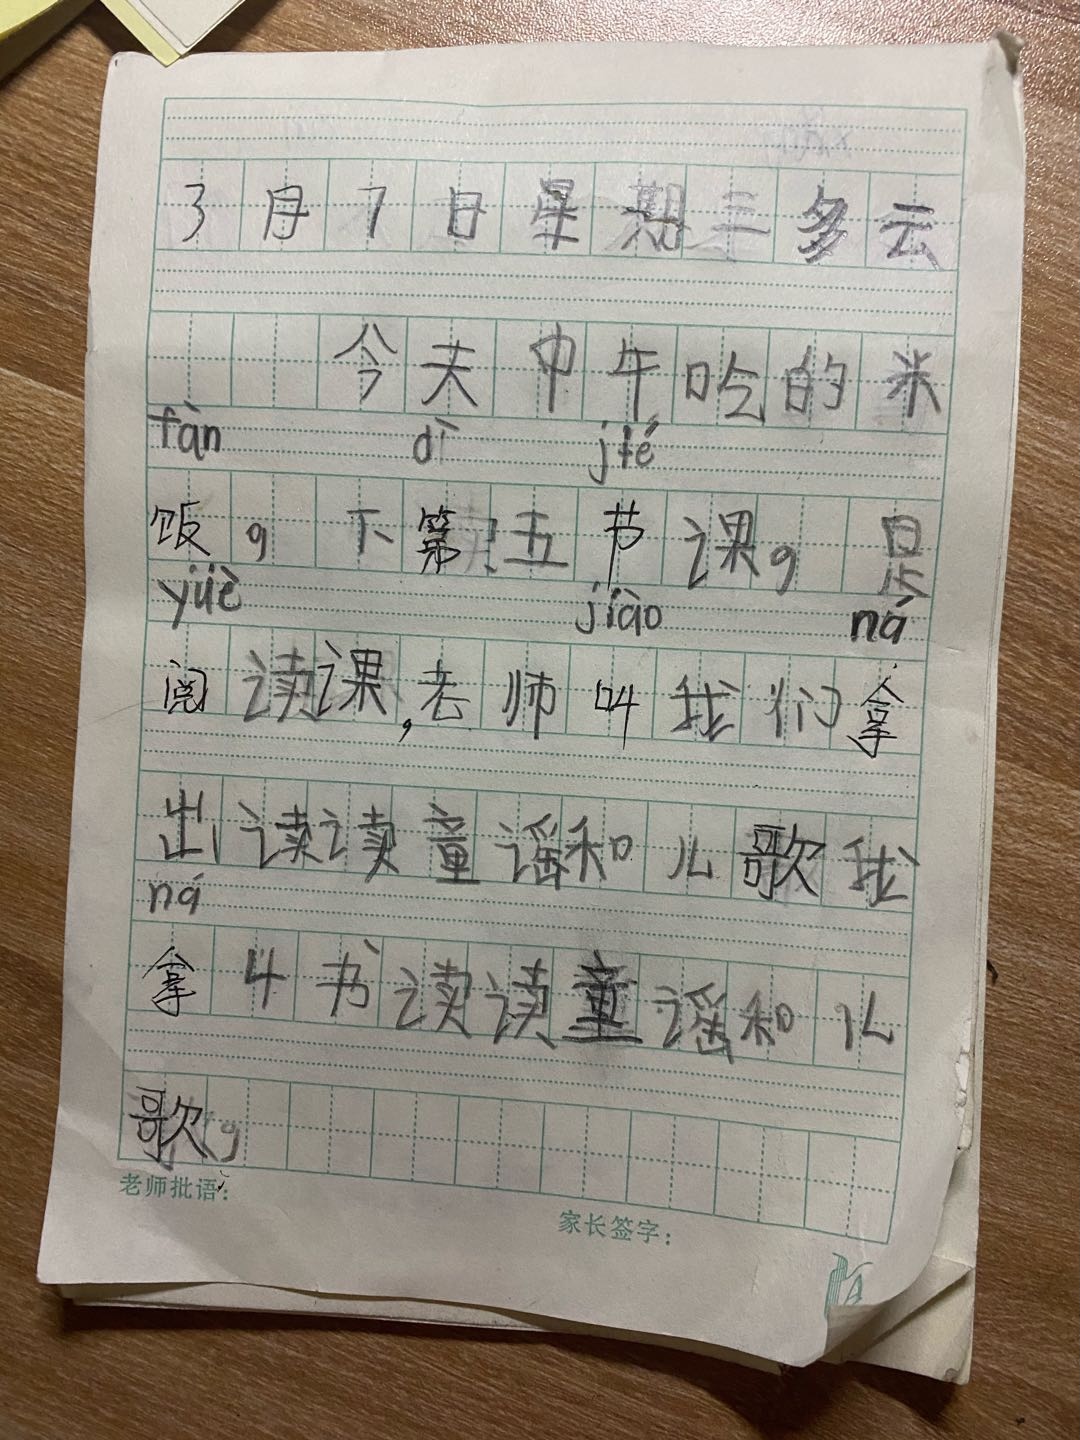 3月7日星期三多云
今天中午吃的米
fàn dì jié
饭,下第五节课,是
yuè jiào ná
阅读课,老师叫我们拿
出读读童谣和儿歌我
ná
拿4书读读童谣和儿
歌,
老师批语:
家长签字: